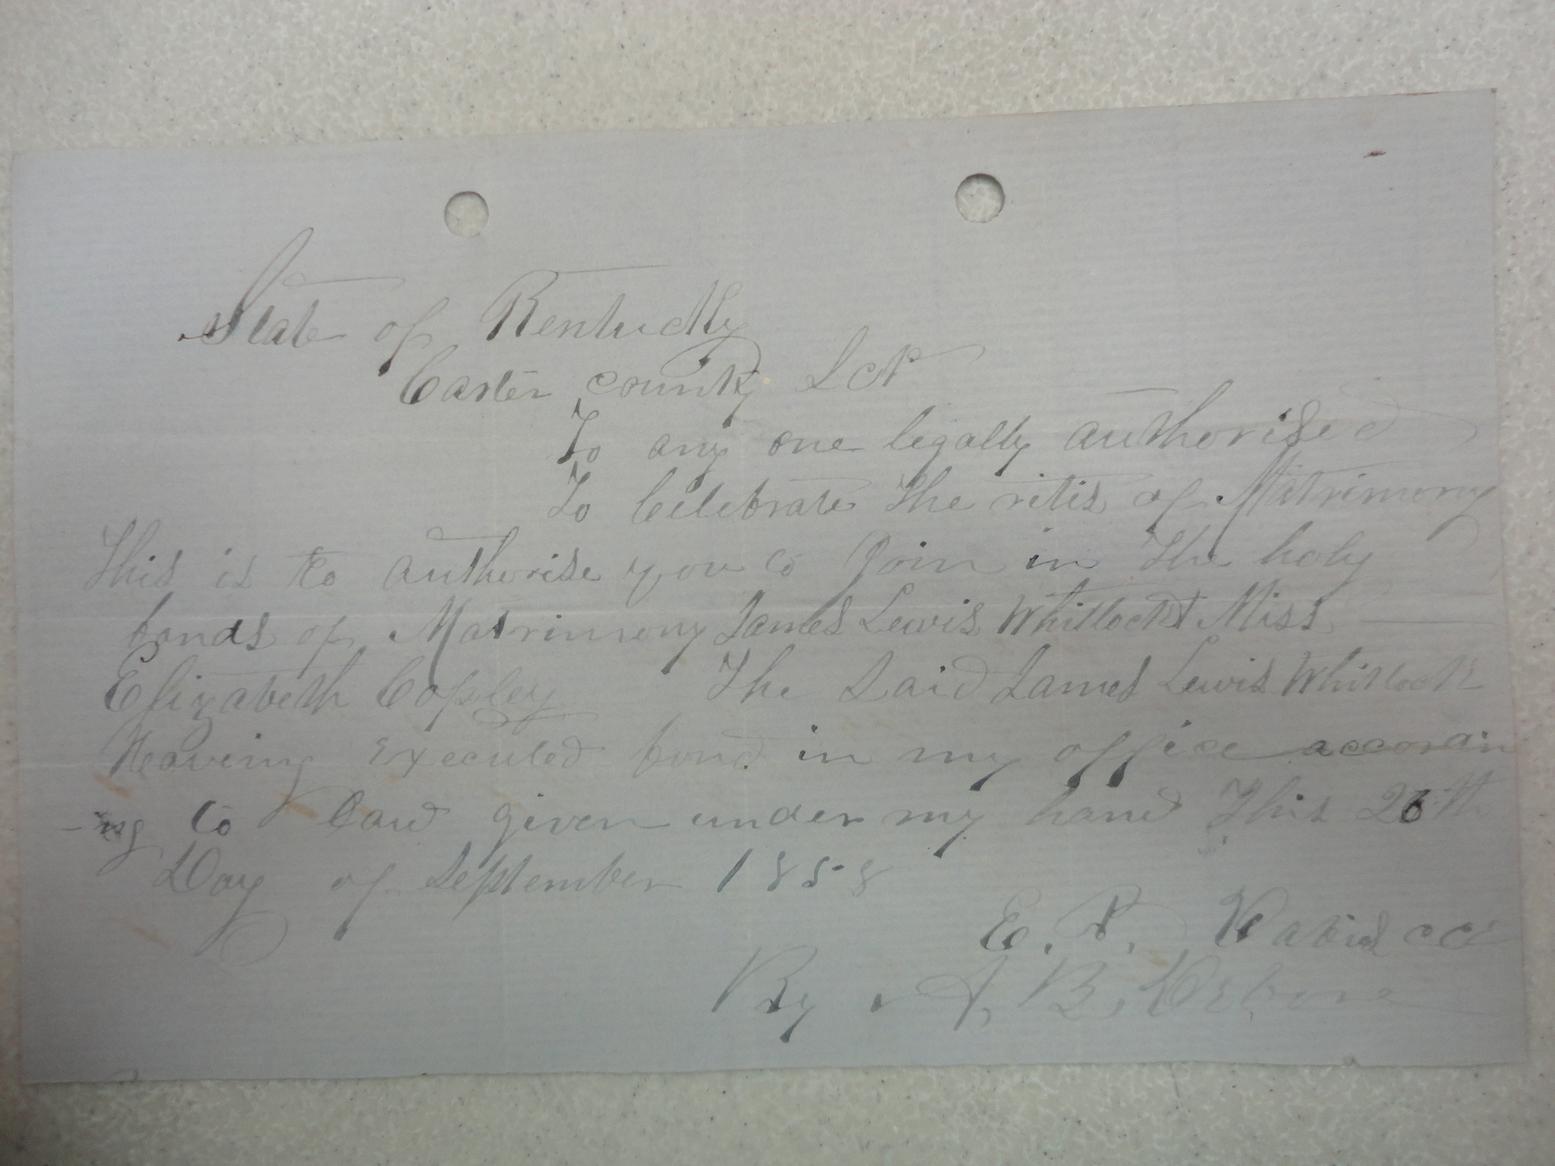 State of Kentucky
Carter county Sct
To any one legally authorised
To Celebrate The rites of Matrimony
This is to authorise you to Join in The holy
bonds of Matrimony James Lewis Whitlock & Miss
Elizabeth Copley The Said James Lewis Whitlock
Heaving Executed bond in my office accordin
-ng to Law given under my hand This 26th
Day of September 1858
E. P. Davis cc
By A. B. Osborne